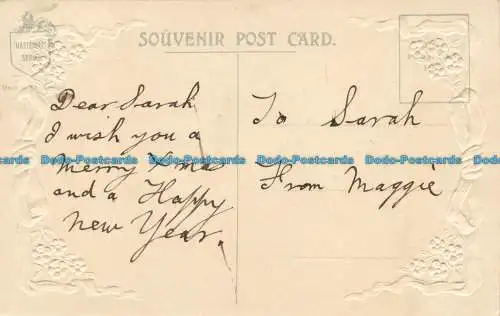 SOUVENIR POST CARD.
NATIONAL
SERIES
Dear Sarah
I wish you a
Merry Xmas
and a Happy
New Year.
To Sarah
From Maggie
Dodo-Postcards Dodo-Postcards Dodo-Postcards Dodo-Postcards Dodo-Postcards